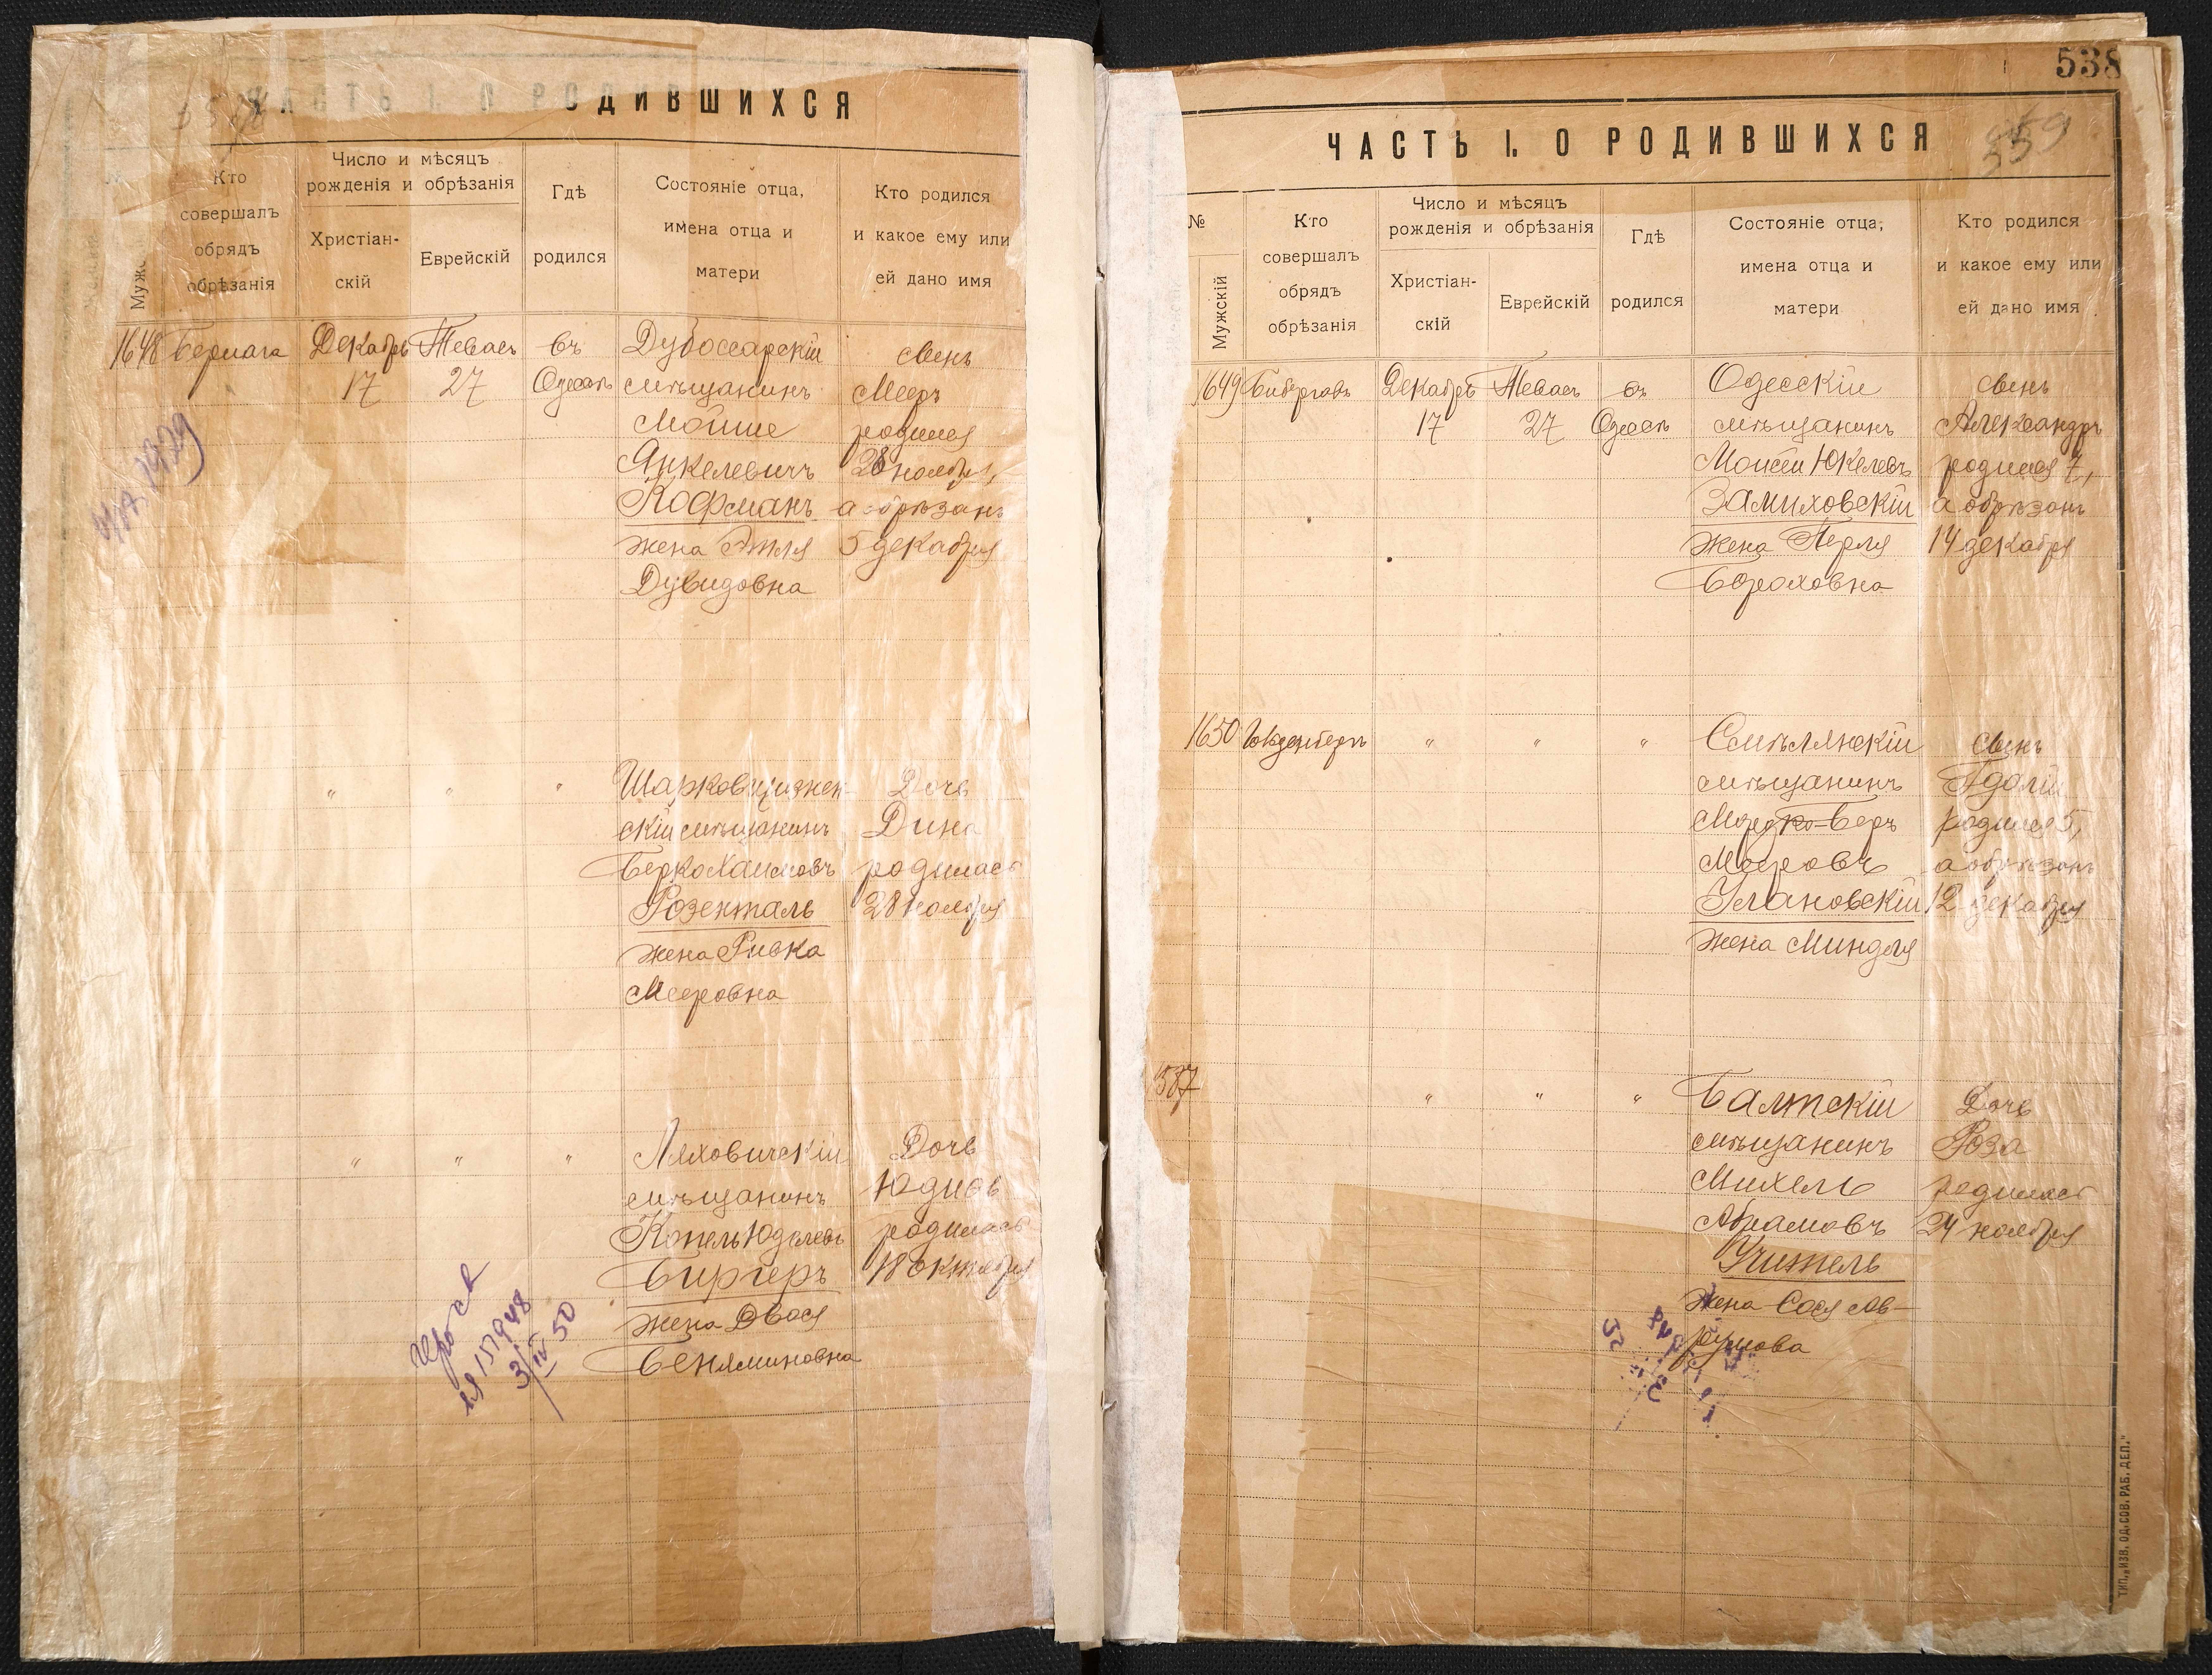 ЧАСТЬ I. О РОДИВШИХСЯ
Кто
совершалъ
обрядъ
обрѣзанія
Число и мѣсяцъ
рожденія и обрѣзанія
Христіан-
скій
Еврейскій
Гдѣ
родился
Состояніе отца,
имена отца и
матери
Кто родился
и какое ему или
ей дано имя
1648
Декабрь
17
Тевасъ
27
въ
Одессѣ
Дубоссарскій
мѣщанинъ
Мойше
Янкелевичъ
Кофманъ
жена Этля
Дувидовна
сынъ
Мееръ
родился
28 ноября,
а обрѣзанъ
5 декабря
" " "
Шарковщизнен-
скій мѣщанинъ
Берко Хаимовъ
Розенталь
жена Ривка
Мееровна
Дочь
Дина
родилась
28 ноября
" " "
Ляховичскій
мѣщанинъ
Копель Юделевъ
Биргеръ
жена Двося
Беняминовна
Дочь
Юдиѳь
родилась
18 октября
157948
3/IV 50
538
559
ЧАСТЬ I. О РОДИВШИХСЯ
№
Мужскій
Кто
совершалъ
обрядъ
обрѣзанія
Число и мѣсяцъ
рожденія и обрѣзанія
Христіан-
скій
Еврейскій
Гдѣ
родился
Состояніе отца,
имена отца и
матери
Кто родился
и какое ему или
ей дано имя
1649
Декабрь
17
Тевасъ
27
въ
Одессѣ
Одесскій
мѣщанинъ
Моисей Юкелевъ
Замиховскій
жена Перля
Бороховна
сынъ
Александръ
родился 7,
а обрѣзанъ
14 декабря
1650 Гольденбергъ
" " "
Смѣлянскій
мѣщанинъ
Мордко-Беръ
Мееровъ
Улановскій
жена Миндля
сынъ
Гдалій
родился 5,
а обрѣзанъ
12 декабря
587
" " "
Балтскій
мѣщанинъ
Михель
Абрамовъ
Учитель
жена Сося Ав-
румова
Дочь
Роза
родилась
24 ноября
ТИП. „ИЗВ. ОД. СОВ. РАБ. ДЕП."